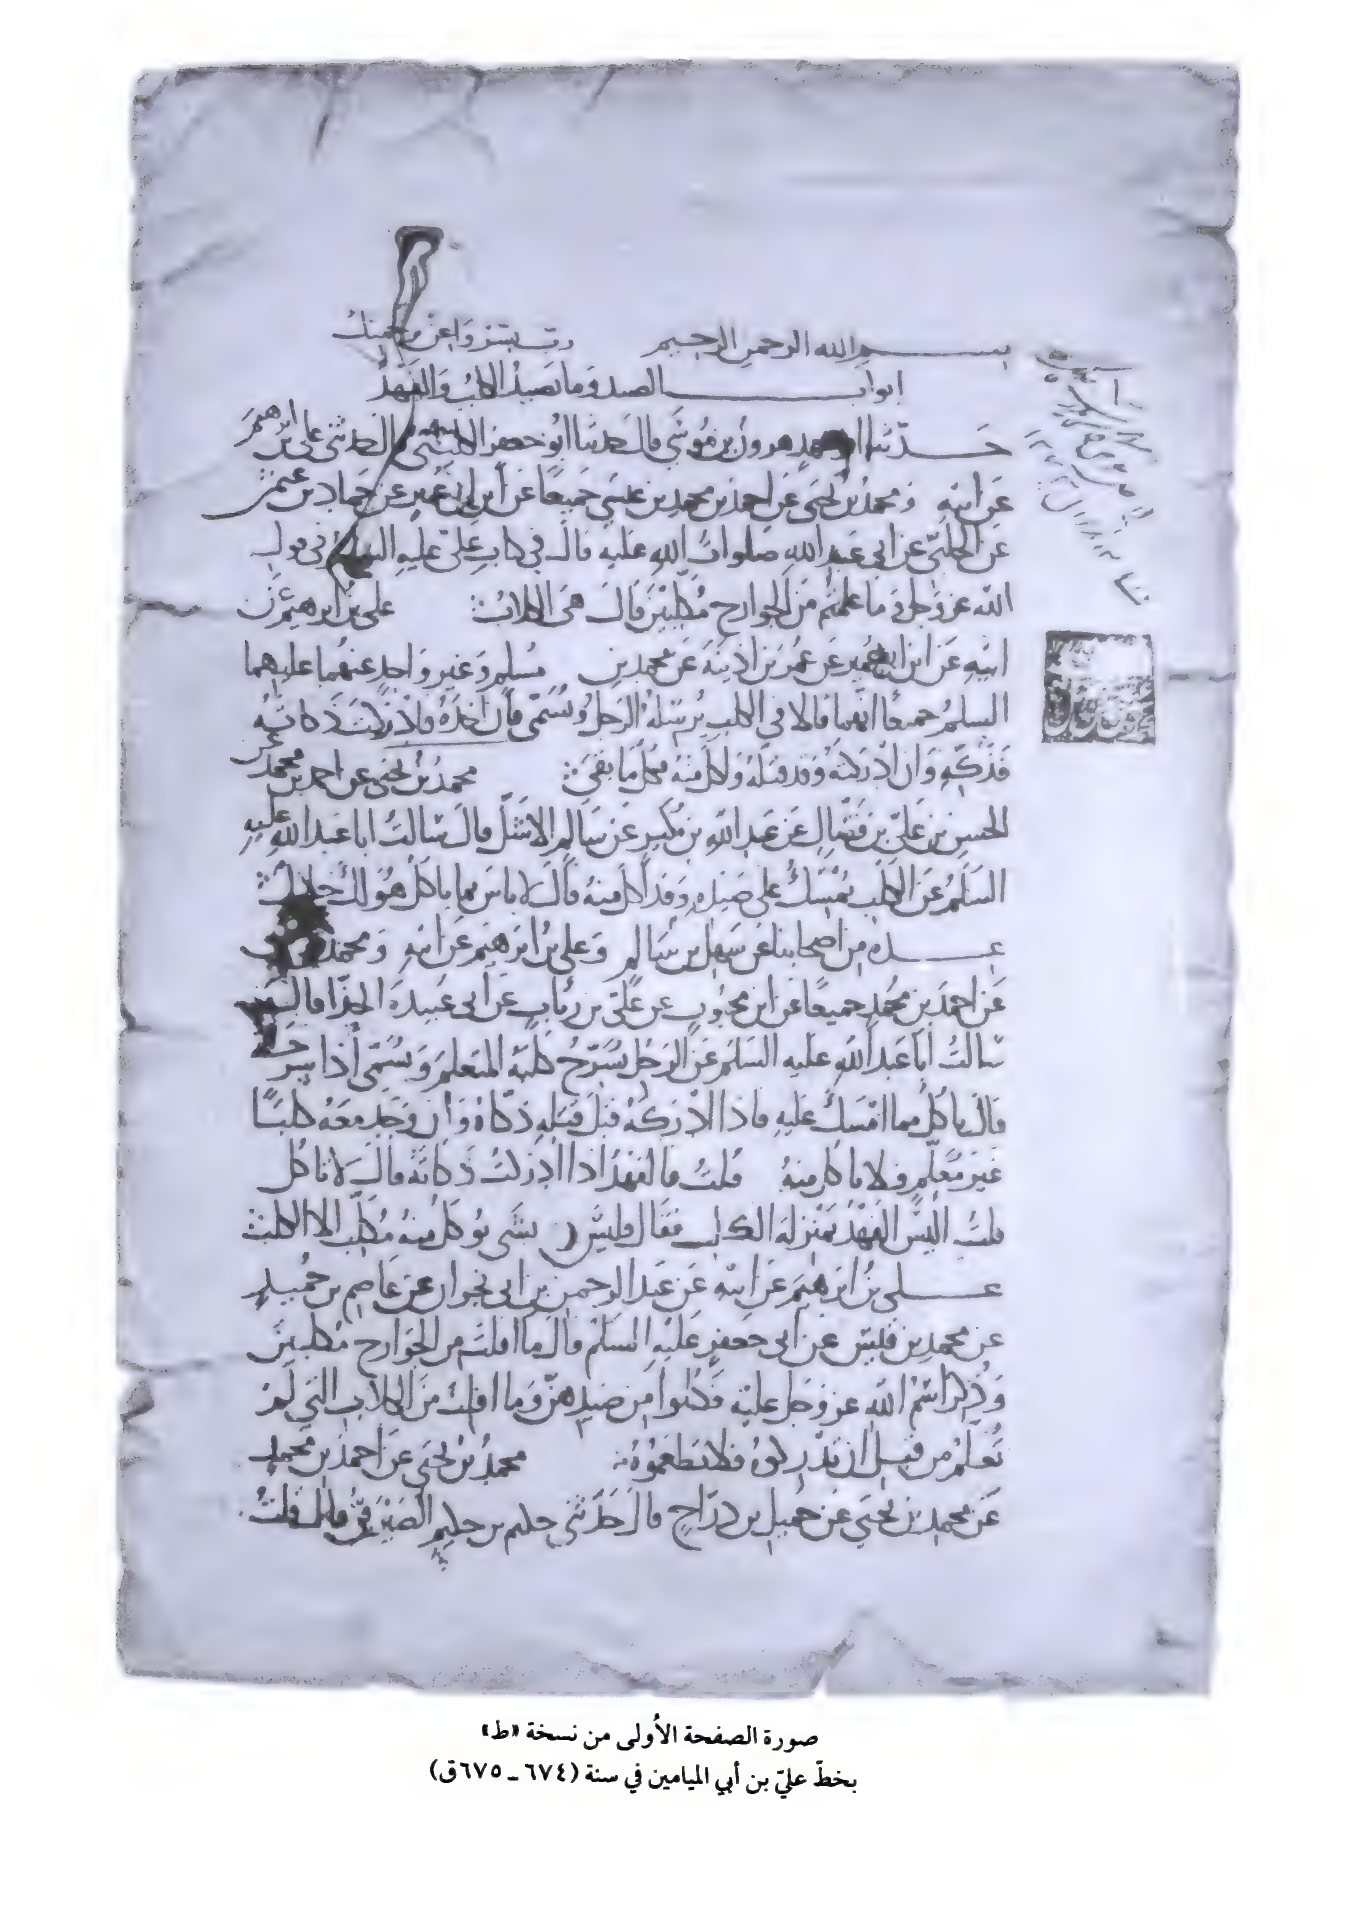 بسم الله الرحمن الرحيم رب يسر واعن برحمتك
ابواب الصيد وما تصيد الكلب والفهد
حدثنا هرون بن موسى قال حدثنا ابو جعفر الكليني قال حدثني علي بن ابرهيم
عن ابيه ومحمد بن يحيى عن احمد بن محمد بن عيسى جميعا عن ابن ابي عمير عن حماد بن عثمن
عن الحلبي عن ابي عبد الله صلوات الله عليه قال في كتاب علي عليه السلم في قول
الله عز وجل وما علمتم من الجوارح مكلبين قال هي الكلاب علي بن ابرهيم عن
ابيه عن ابن ابي عمير عن عمر بن اذينة عن محمد بن مسلم وغير واحد عنهما عليهما
السلم جميعا انهما قالا في الكلب يرسله الرجل ويسمى قال ان اخذه فادركت ذكاته
فذكه وان ادركته وقد قتله واكل منه فكل ما بقى محمد بن يحيى عن احمد بن محمد عن
الحسن بن علي بن فضال عن عبد الله بن بكير عن سالم الاشل قال سالت ابا عبد الله عليه
السلم عن الكلب يمسك على صيده وقد اكل منه قال لا باس بما ياكل هو لك حلال
عدة من اصحابنا عن سهل بن سالم وعلي بن ابرهيم عن ابيه ومحمد
عن احمد بن محمد جميعا عن ابن محبوب عن علي بن رياب عن ابي عبيدة الحذا قال
سالت ابا عبد الله عليه السلم عن الرجل يسرح كلبه المعلم ويسمى اذا سرحه
قال ياكل مما امسك عليه فاذا ادركه قبل قتله ذكاه وان وجد معه كلبا
غير معلم فلا ياكل منه قلت فالفهد اذا ادركت ذكاته قال لا تاكل
قلت اليس الفهد بمنزلة الكلب فقال فليس شي يوكل منه مكلب الا الكلب
علي بن ابرهيم عن ابيه عن عبد الرحمن بن ابي نجران عن عاصم بن حميد
عن محمد بن قيس عن ابي جعفر عليه السلم قال ما اقلت من الجوارح مكلبين
وذكر اسم الله عز وجل عليه فكلوا من صيدهن وما اقلت من الكلاب التي لم
تعلم من قبل ان تدركوه فلا تطعموه محمد بن يحيى عن احمد بن محمد
عن محمد بن يحيى عن جميل بن دراج قال حدثني حكيم بن حكيم الصيرفي قال قلت
صورة الصفحة الأولى من نسخة «ط»
بخطّ عليّ بن أبي الميامين في سنة (٦٧٤ ـ ٦٧٥ق)